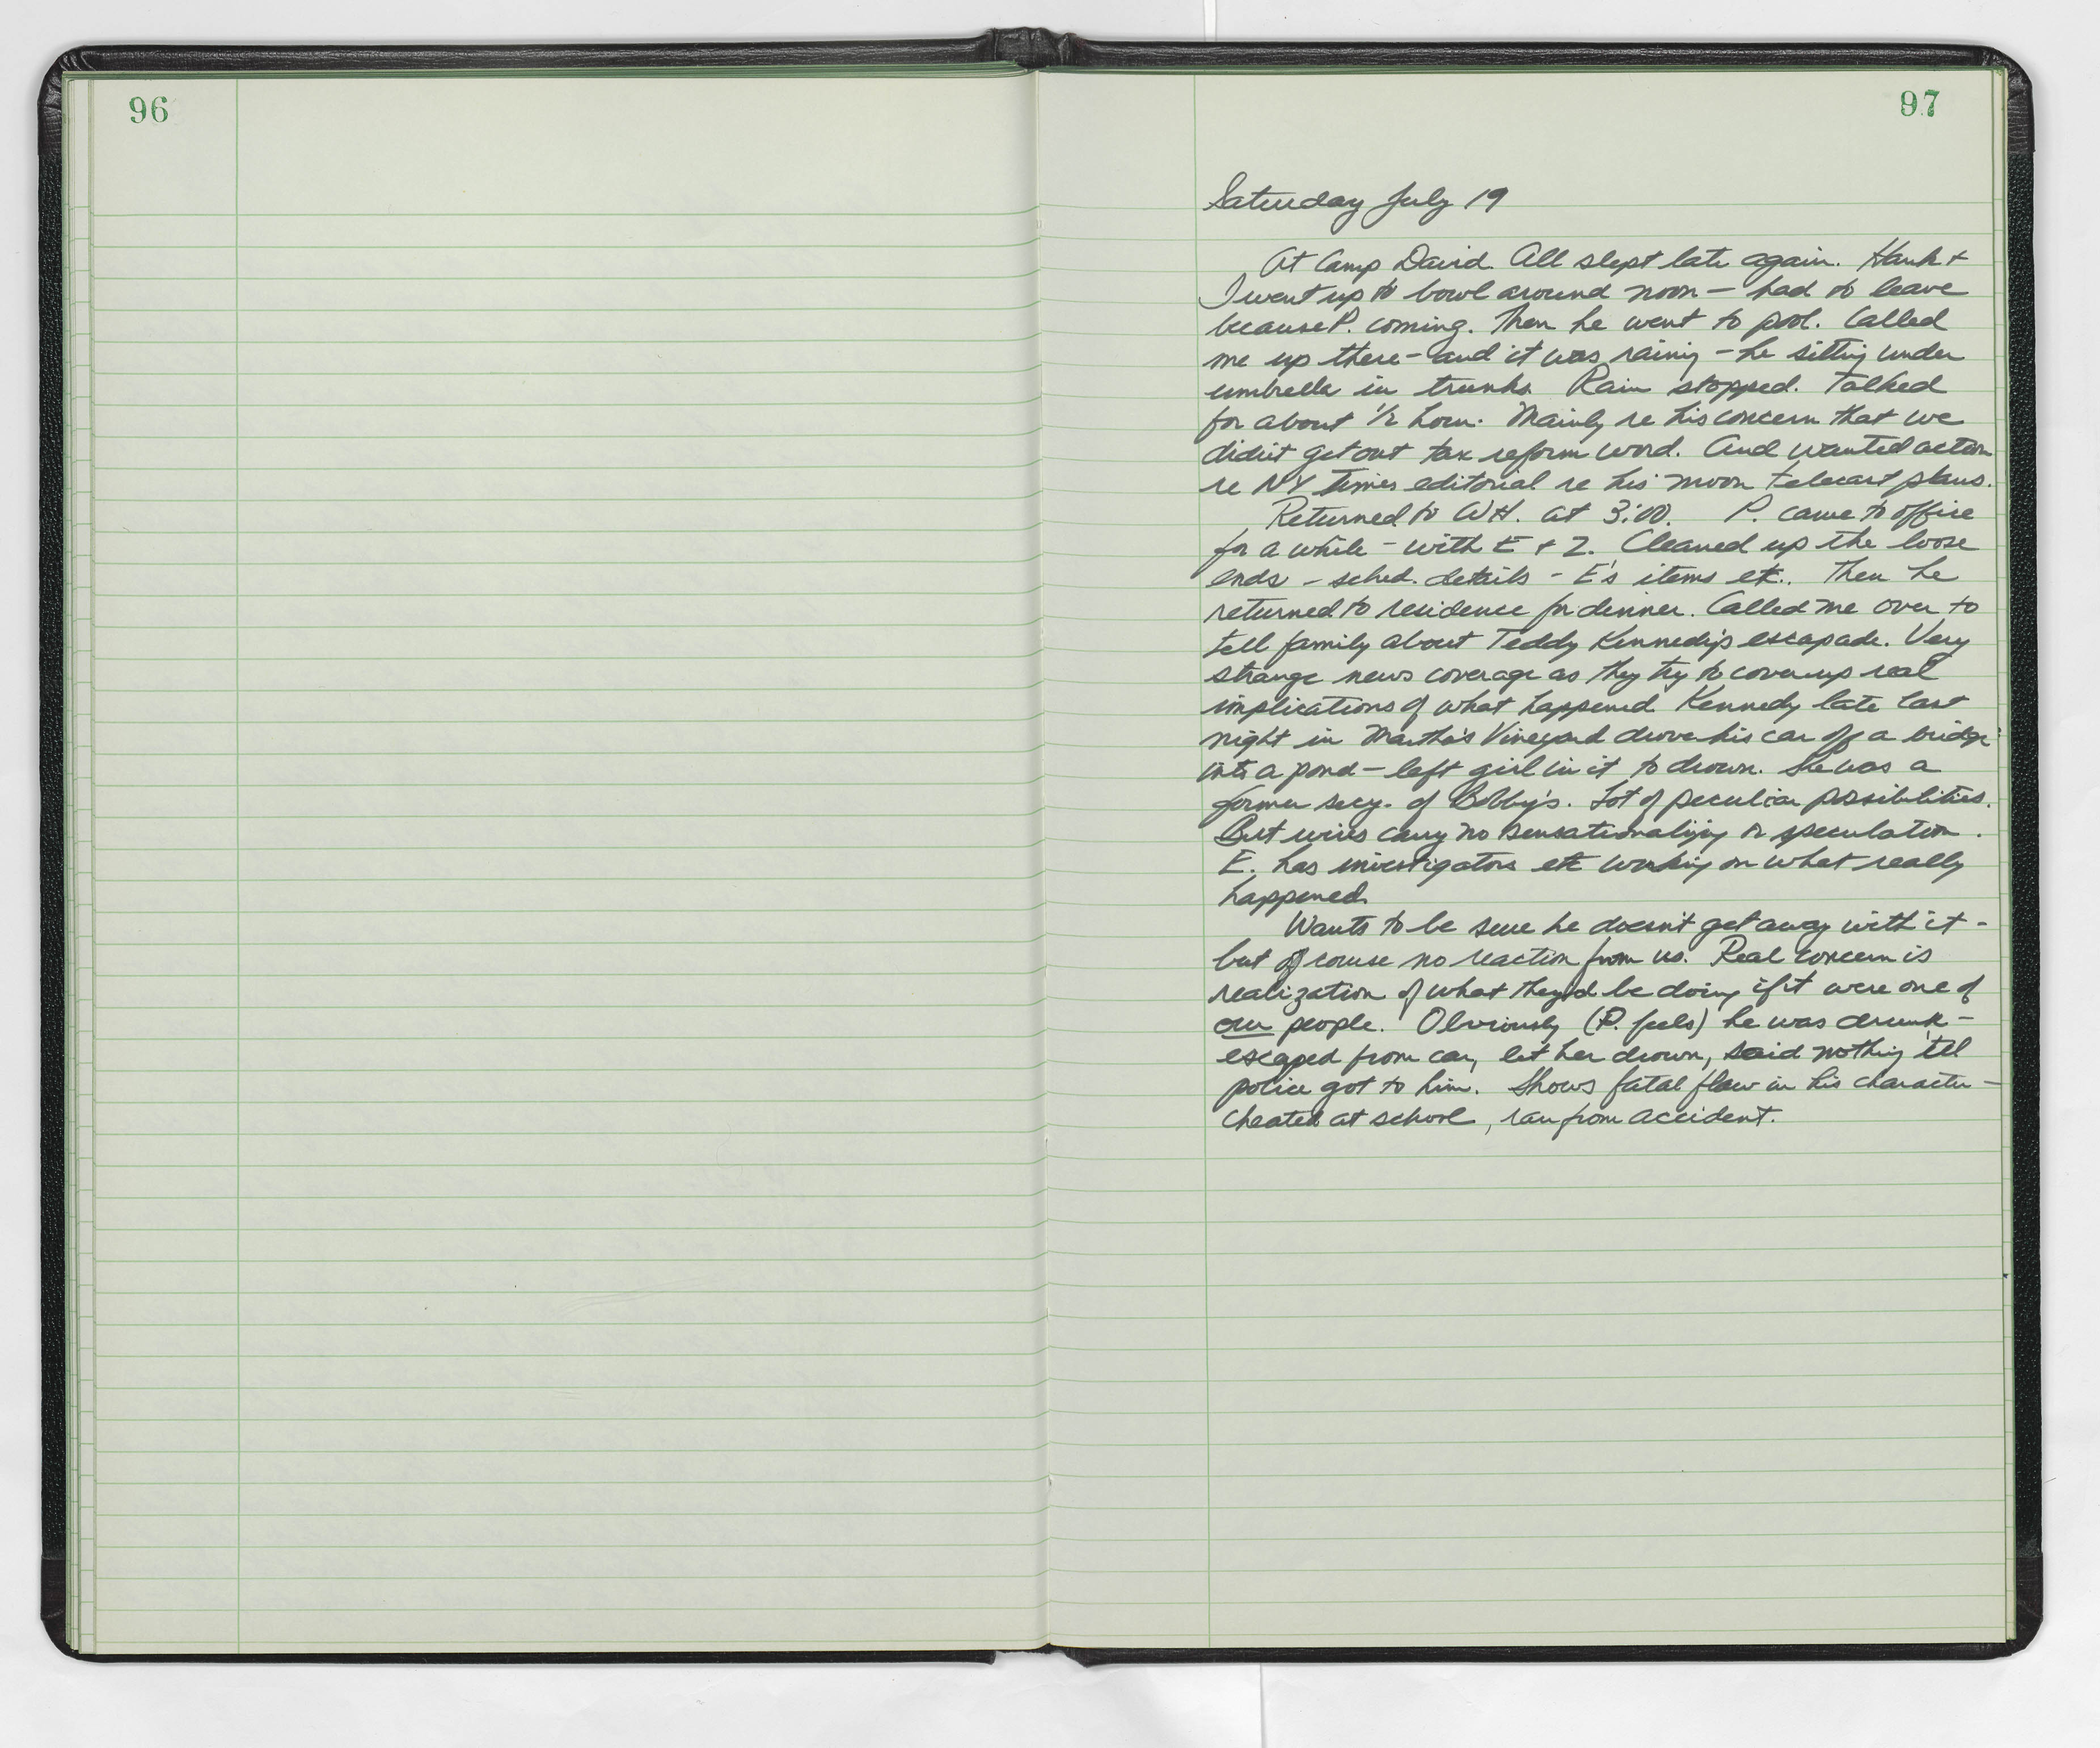 96
97
Saturday July 19
At Camp David. All slept late again. Hank +
I went up to bowl around noon – had to leave
because P. coming. Then he went to pool. Called
me up there – and it was raining – he sitting under
umbrella in trunks. Rain stopped. Talked
for about 1/2 hour. Mainly re his concern that we
didn't get out tax reform word. And wanted action
re NY Times editorial re his moon telecast plans.
Returned to WH. at 3:00. P. came to office
for a while – with E + Z. Cleaned up the loose
ends – sched. details – E's items etc.. Then he
returned to residence for dinner. Called me over to
tell family about Teddy Kennedy's escapade. Very
strange news coverage as they try to cover up real
implications of what happened. Kennedy late last
night in Martha's Vineyard drove his car off a bridge
into a pond – left girl in it to drown. She was a
former secy. of Bobby's. Lot of peculiar possibilities.
But wires carry no sensationalizing or speculation.
E. has investigators etc working on what really
happened.
Wants to be sure he doesn't get away with it –
but of course no reaction from us. Real concern is
realization of what they'd be doing if it were one of
our people. Obviously (P. feels) he was drunk –
escaped from car, let her drown, said nothing 'til
police got to him. Shows fatal flaw in his character –
cheated at school, ran from accident.